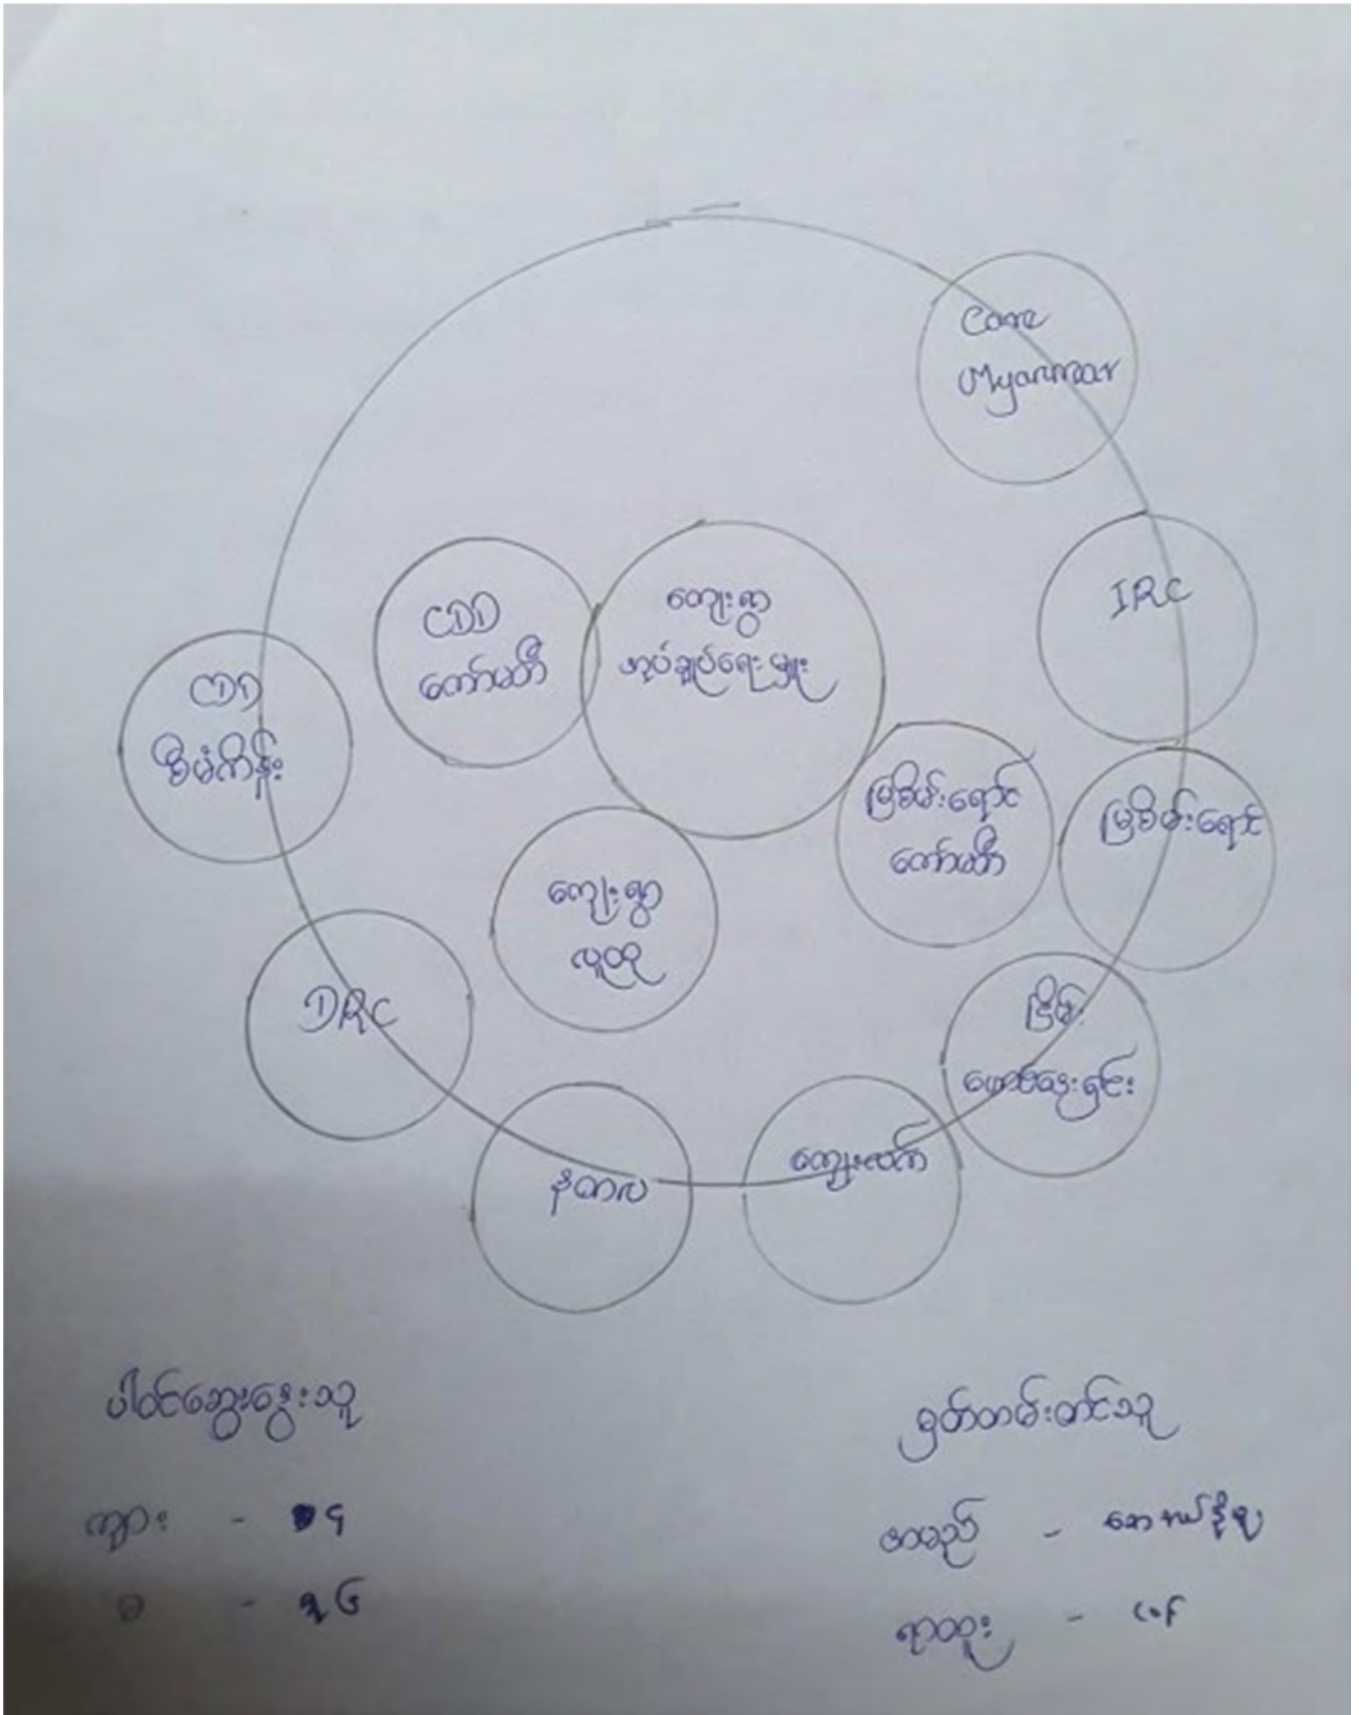 Care
Myanmar
IRC
CDD
ကော်မတီ
ကျေးရွာ
အုပ်ချုပ်ရေးမှူး
CDD
စီမံကိန်း
မြစိမ်းရောင်
ကော်မတီ
မြစိမ်းရောင်
ကျေးရွာ
လူထု
DRC
ငြိမ်း
ဖောင်ဒေးရှင်း
ကျေးလက်
ပါဝင်ဆွေးနွေးသူ
မှတ်တမ်းတင်သူ
ကျား -
အမည် -
မ -
ရာထူး -